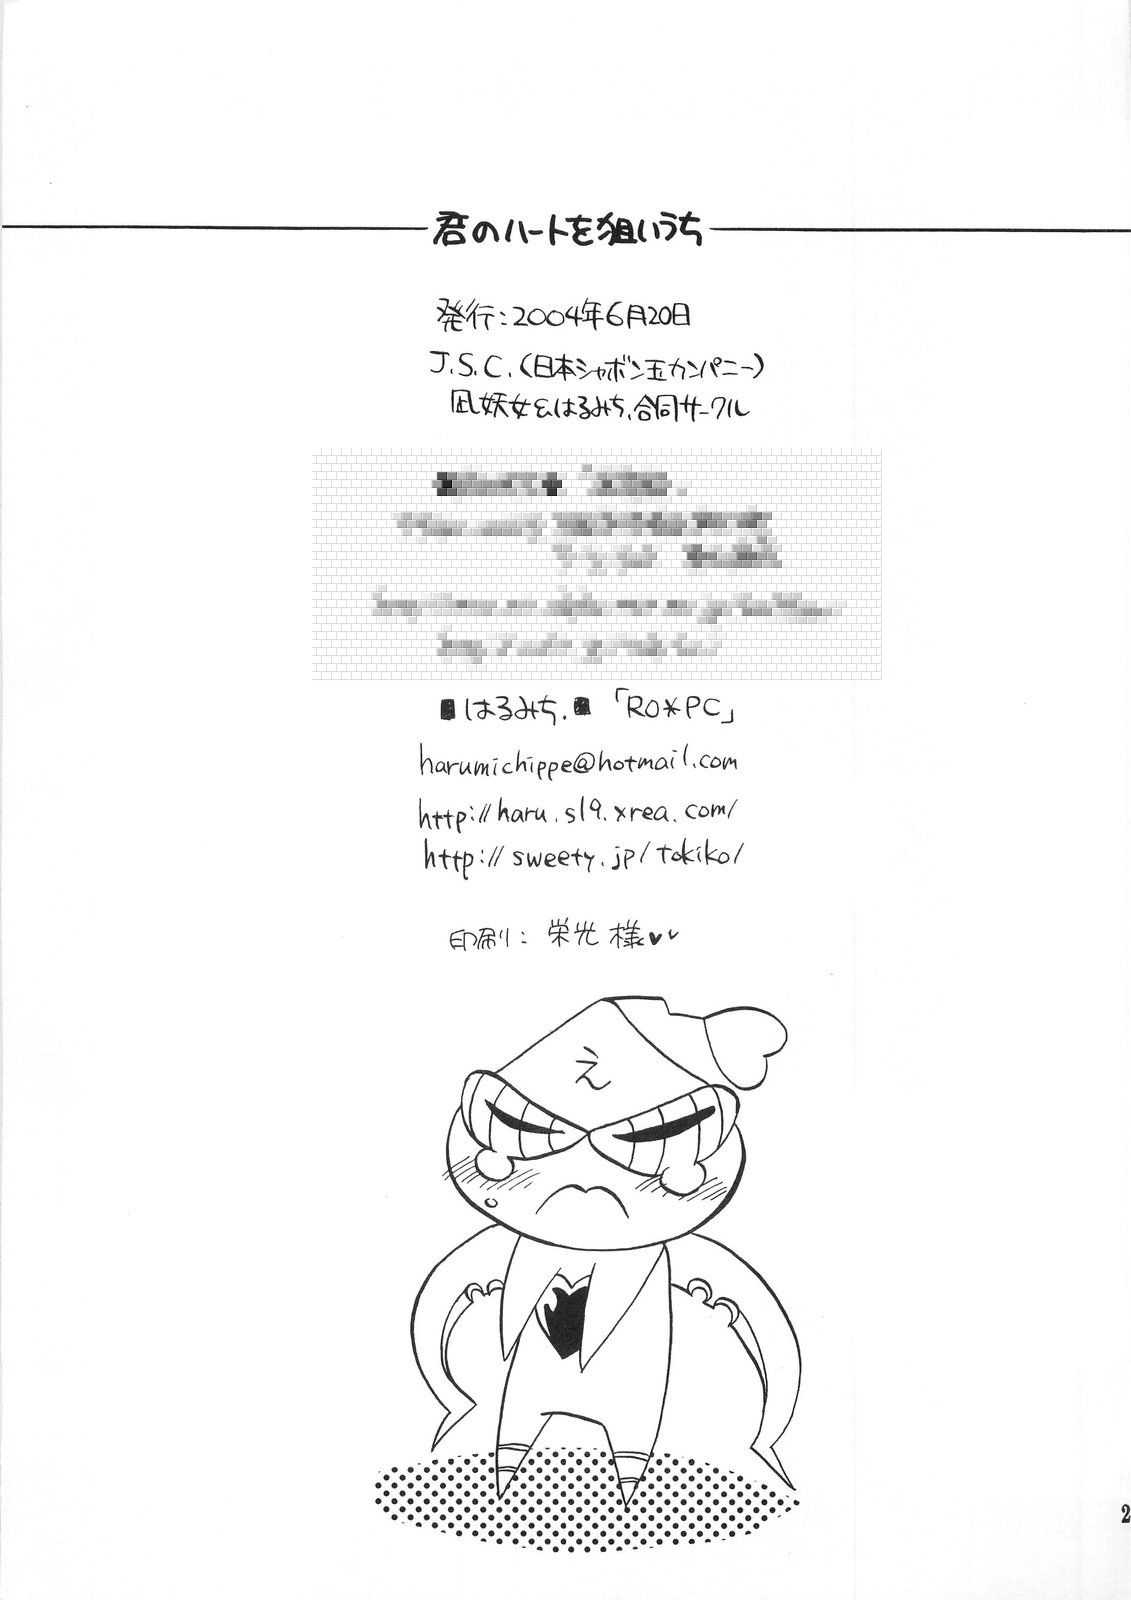 君のハートを狙いうち
発行:2004年6月20日
J.S.C.(日本シャボン玉カンパニー)
凪妖女&はるみち.合同サークル
■はるみち.■「RO*PC」
harumichippe@hotmail.com
http://haru.s19.xrea.com/
http://sweety.jp/tokiko/
印刷:栄光 様♥♥
え
2